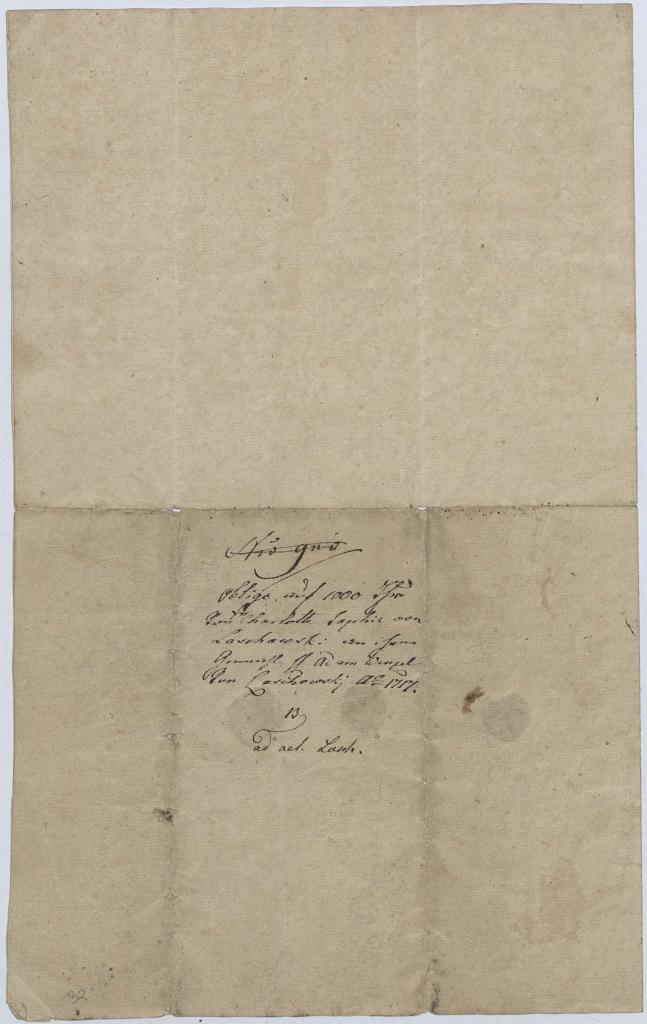 Obligo auf 1000 Thr
Charlotte Sophie von
Laschowski an ihren
Gemahl H Adam Wenzel
Von Laschowskÿ Ao 1717.
13
ad act. Lasch.
32